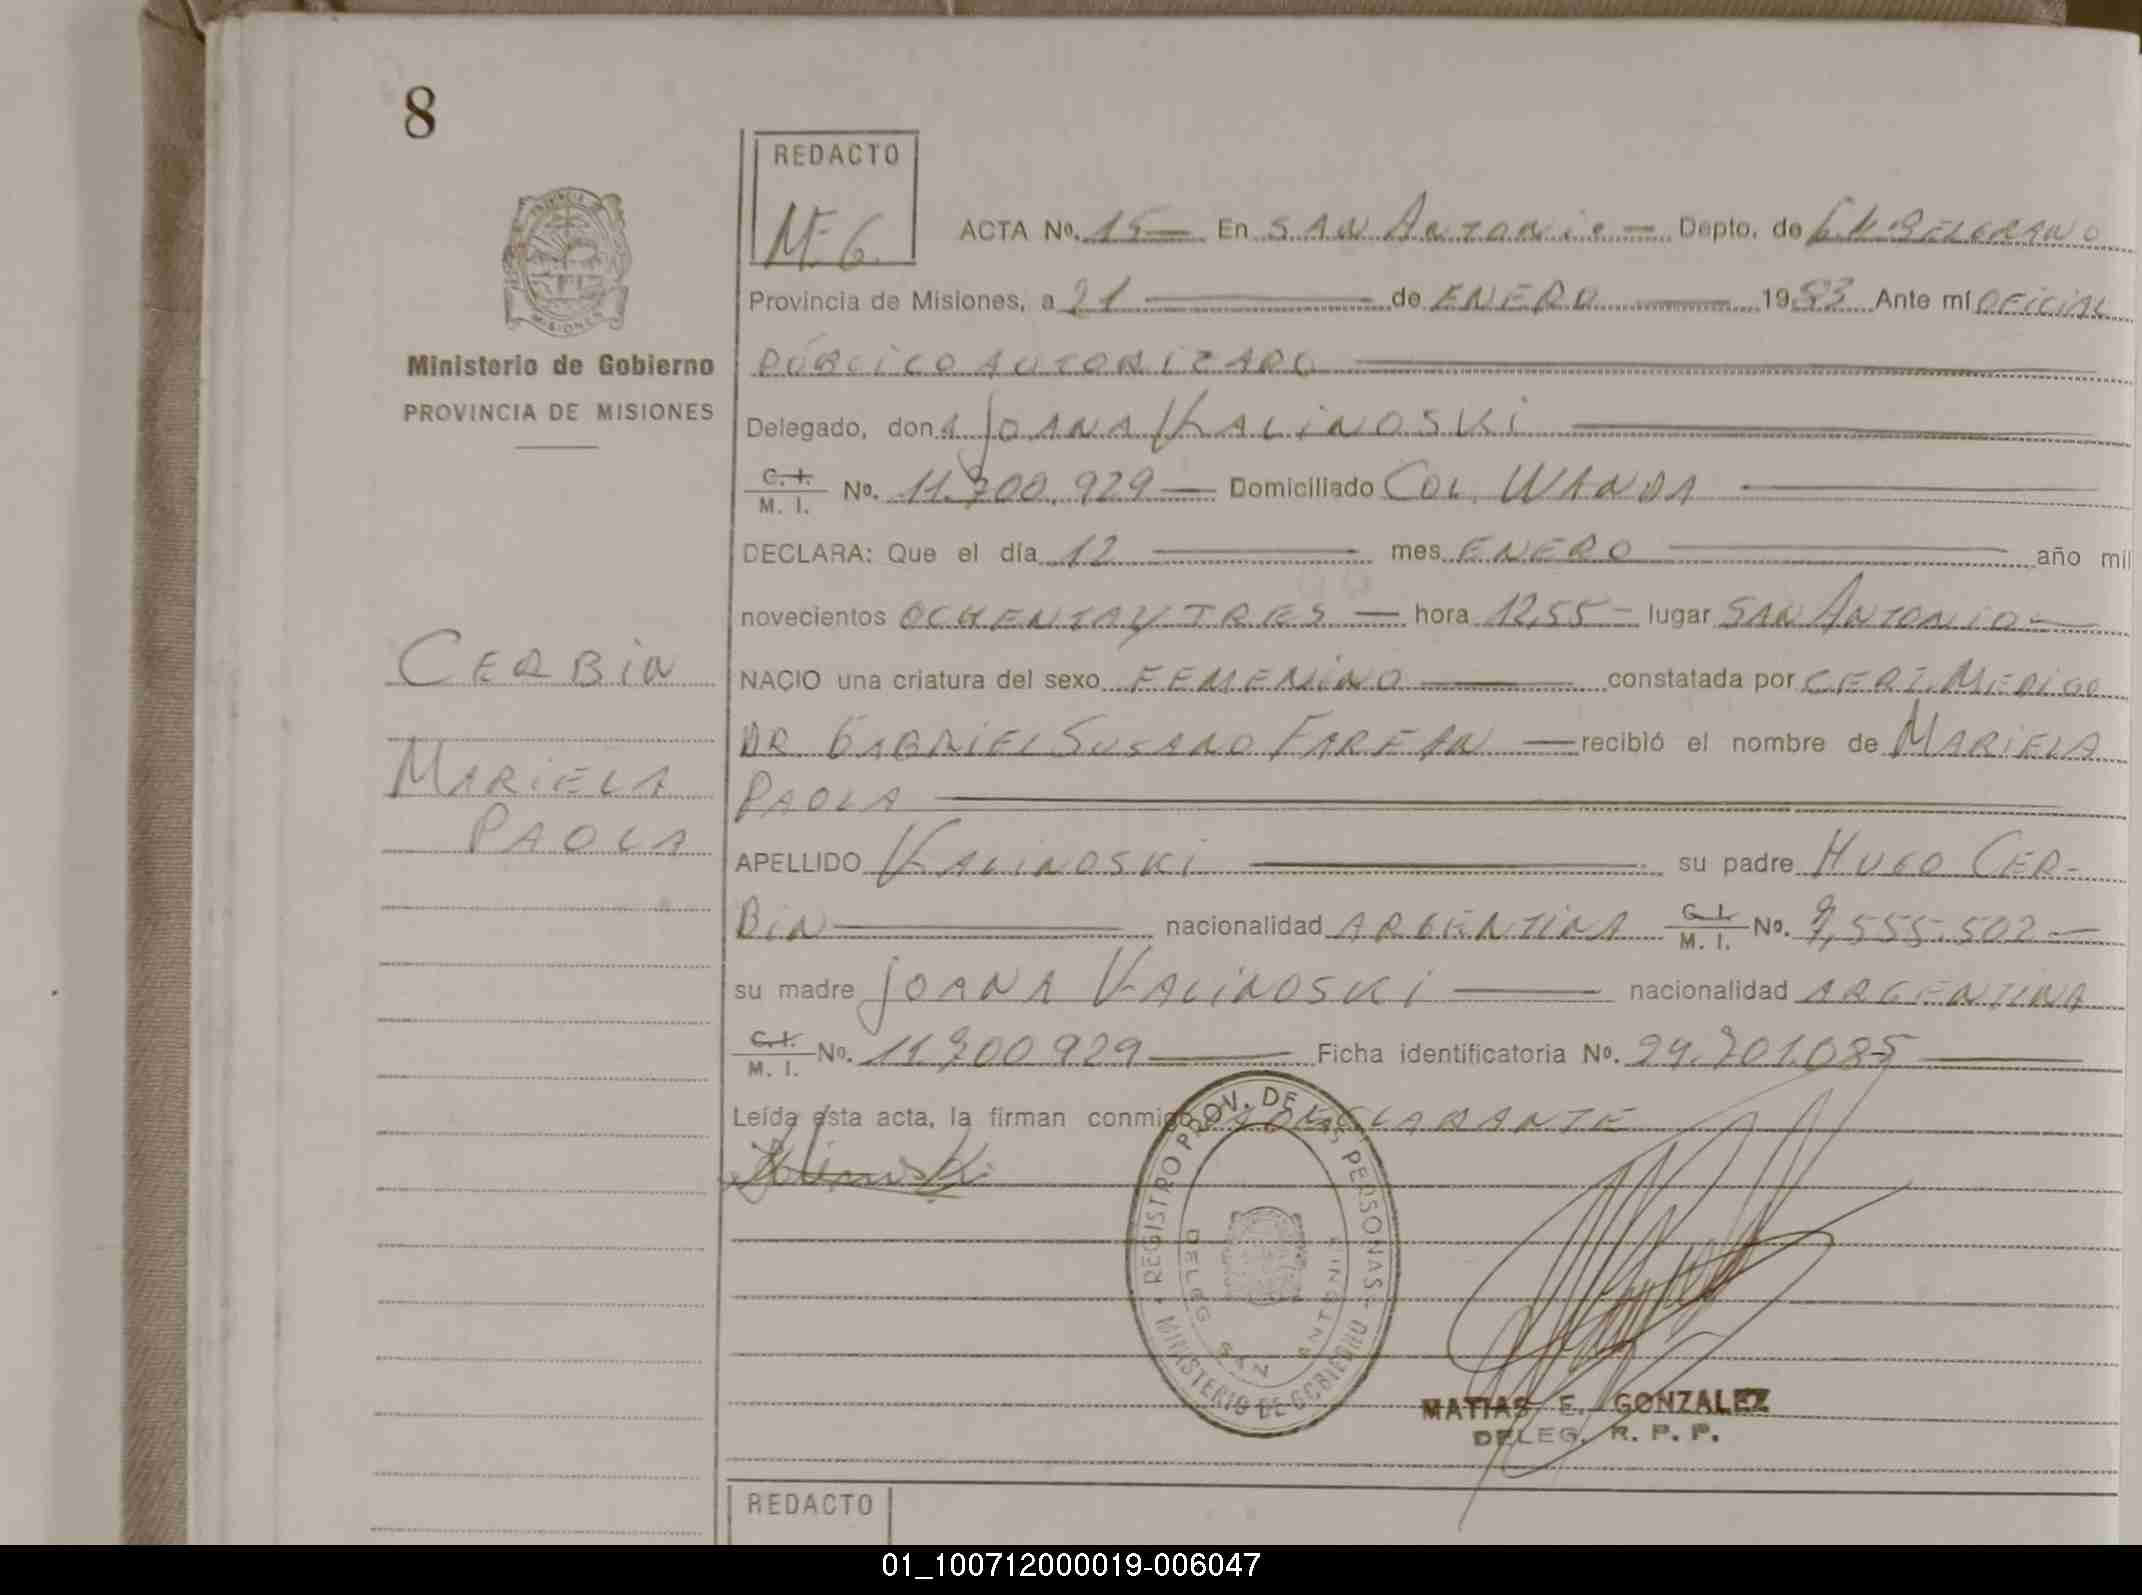 8
REDACTO
M.G.
PROVINCIA DE
MISIONES
Ministerio de Gobierno
PROVINCIA DE MISIONES
CERBIN
MARIELA
PAOLA
ACTA No. 15 En SAN ANTONIO Depto. de GM BELGRANO
Provincia de Misiones, a 21 de ENERO 1983 Ante mí OFICIAL
PÚBLICO AUTORIZADO
Delegado, don A JOANA KALINOSKI
C. I. / M. I. No. 11.700.929 Domiciliado COL. WANDA
DECLARA: Que el día 12 mes ENERO año mil
novecientos OCHENTA Y TRES hora 12,55 lugar SAN ANTONIO
NACIO una criatura del sexo FEMENINO constatada por CERT. MEDICO
DR. GABRIEL SUSANO recibió el nombre de MARIELA
PAOLA
APELLIDO KALINOSKI su padre HUGO CER-
BIN nacionalidad ARGENTINA C. I. / M. I. No. 7,555.502
su madre JOANA KALINOSKI nacionalidad ARGENTINA
C. I. / M. I. No. 11.700.929 Ficha identificatoria No. 29.701.085
Leída ésta acta, la firman conmigo DECLARANTE
REGISTRO PROV. DE LAS PERSONAS
MINISTERIO DE GOBIERNO
DELEG SAN ANTONIO
MATIAS E. GONZALEZ
DELEG. R. P. P.
REDACTO
01_100712000019-006047